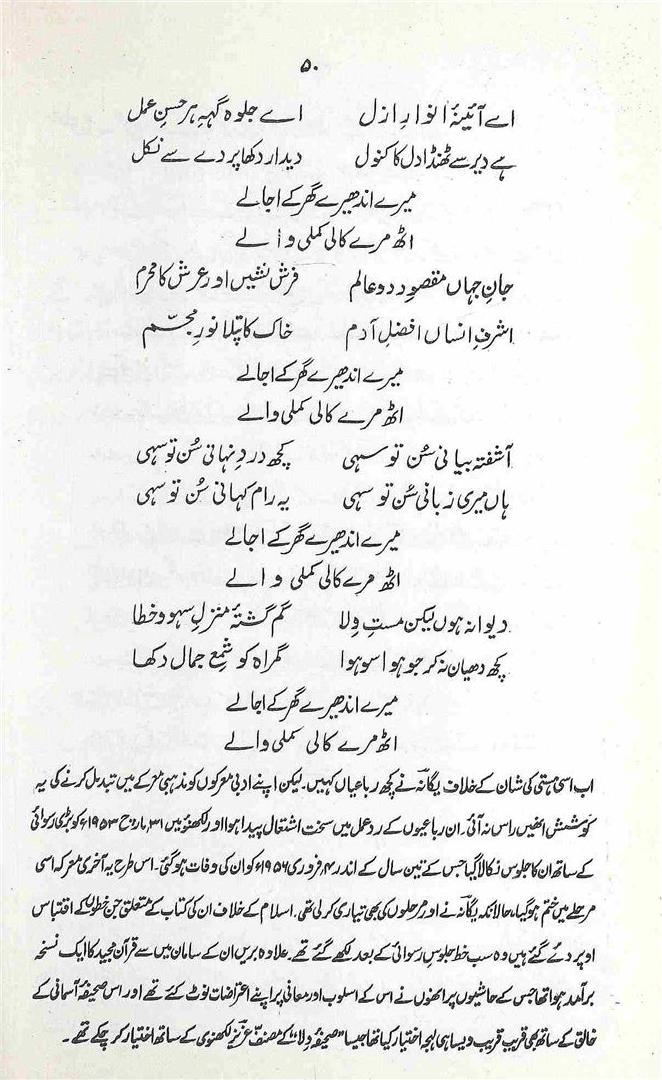 ۵۰
اے آئینۂ انوارِ ازل اے جلوہ گہہِ ہر حسنِ عمل
ہے دیر سے ٹھنڈا دل کا کنول دیدار دکھا پردے سے نکل
میرے اندھیرے گھر کے اجالے
اٹھ مرے کالی کملی والے
جانِ جہاں مقصودِ دو عالم فرش نشیں اور عرش کا محرم
اشرفِ انساں افضلِ آدم خاک کا پتلا نورِ مجسّم
میرے اندھیرے گھر کے اجالے
اٹھ مرے کالی کملی والے
آشفتہ بیانی سُن تو سہی کچھ دردِ نہانی سُن تو سہی
ہاں میری زبانی سُن تو سہی یہ رام کہانی سُن تو سہی
میرے اندھیرے گھر کے اجالے
اٹھ مرے کالی کملی والے
دیوانہ ہوں لیکن مستِ وِلا گم گشتۂ منزلِ سہو و خطا
کچھ دھیان نہ کر جو ہوا سو ہوا گمراہ کو شمعِ جمال دکھا
میرے اندھیرے گھر کے اجالے
اٹھ مرے کالی کملی والے
اب اسی ہستی کی شان کے خلاف یگانہ نے کچھ رباعیاں کہیں۔ لیکن اپنے ادبی معرکوں کو مذہبی معرکے میں تبدیل کرنے کی یہ
کوشش انھیں راس نہ آئی۔ ان رباعیوں کے ردعمل میں سخت اشتعال پیدا ہوا اور لکھنؤ میں ۳۱ مارچ ۱۹۵۳ء کو بڑی رسوائی
کے ساتھ ان کا جلوس نکالا گیا جس کے تین سال کے اندر ۴ فروری ۱۹۵۶ء کو ان کی وفات ہوگئی۔ اس طرح یہ آخری معرکہ اسی
مرحلے میں ختم ہوگیا، حالانکہ یگانہ نے اور مرحلوں کی بھی تیاری کر لی تھی۔ اسلام کے خلاف ان کی کتاب کے متعلق جن خطوں کے اقتباس
اوپر دئے گئے ہیں وہ سب خط جلوسِ رسوائی کے بعد لکھے گئے تھے۔ علاوہ بریں ان کے سامان میں سے قرآن مجید کا ایک نسخہ
برآمد ہوا تھا جس کے حاشیوں پر انھوں نے اس کے اسلوب اور معانی پر اپنے اعتراضات نوٹ کئے تھے اور اس صحیفۂ آسمانی کے
خالق کے ساتھ بھی قریب قریب ویسا ہی لہجہ اختیار کیا تھا جیسا "صحیفۂ ولا" کے مصنف عزیز لکھنوی کے ساتھ اختیار کر چکے تھے۔